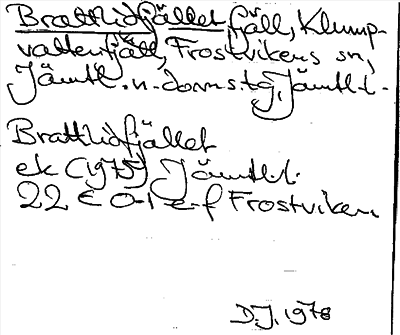 Brattlidfjället fjäll, Klump-
vattenfjäll, Frostvikens sn,
Jämtl. n. domstg, Jämtl. l.
Brattlidfjället
ek (1975) Jämtl. l.
22 E 0-1 e-f Frostviken
D.J. 1978